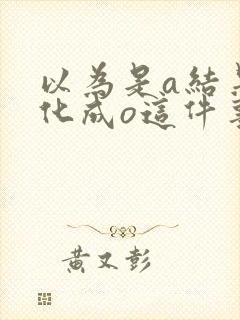 以為是a結
化成o這件
黃又彭